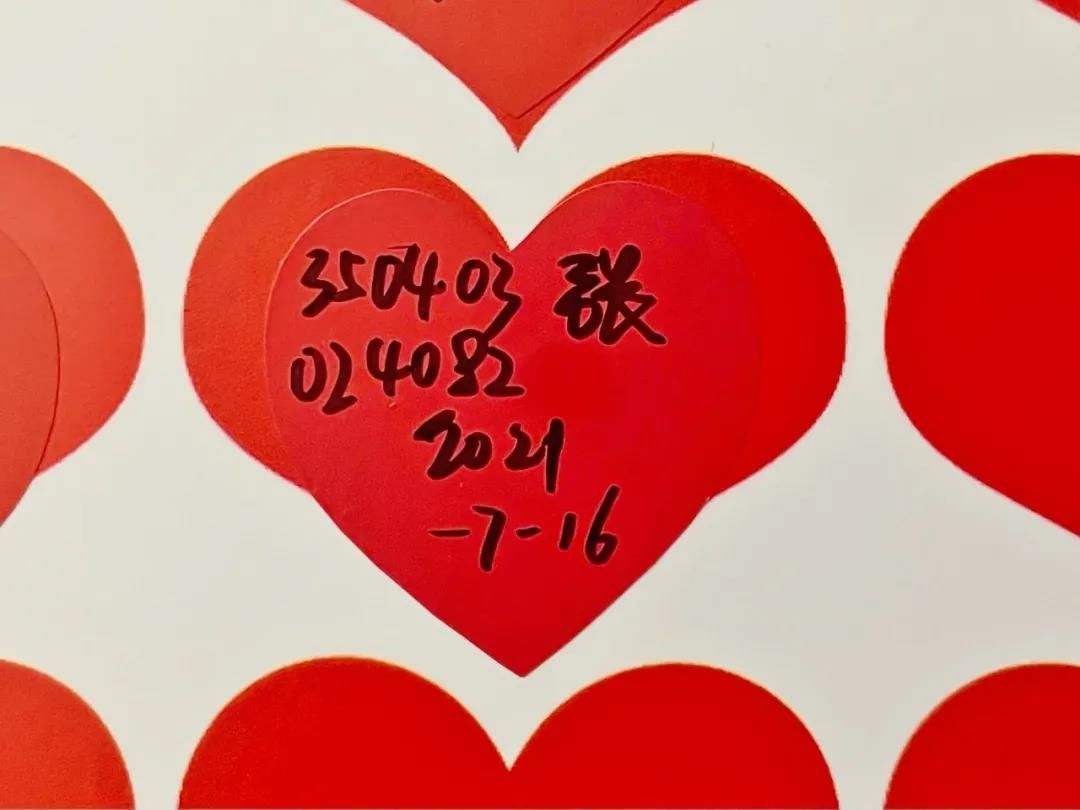 350403 張
024082
2021
-7-16